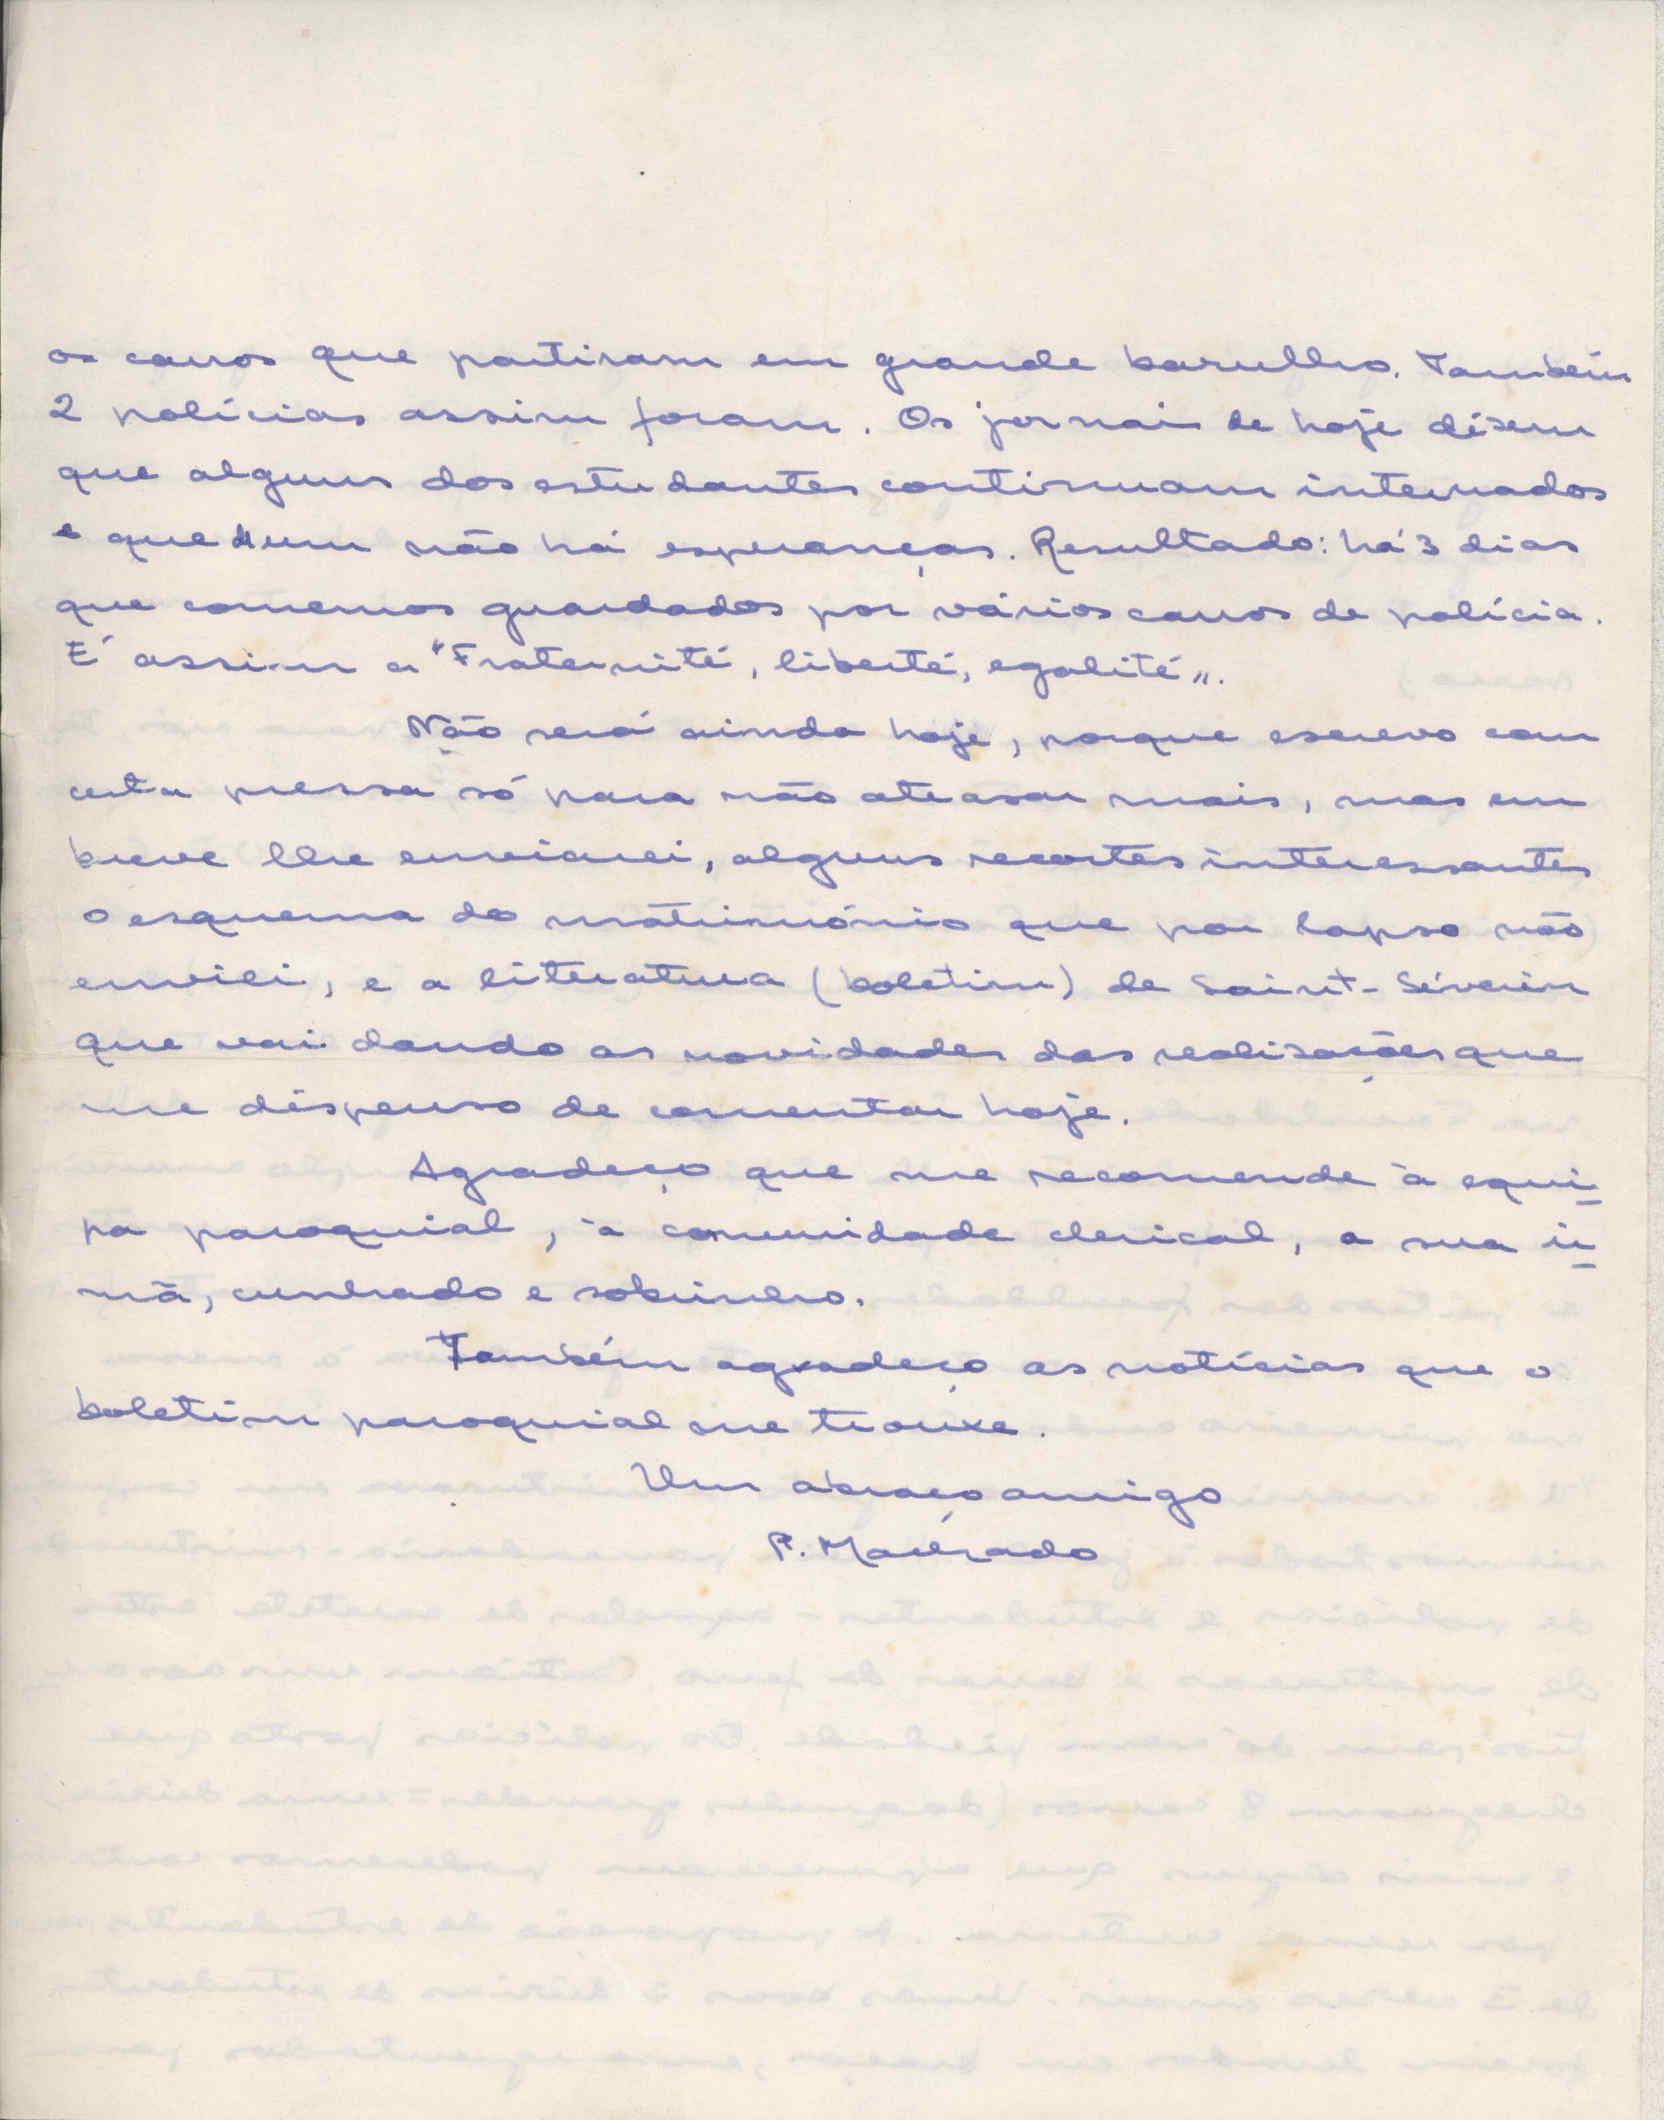 os carros que partiram em grande barulho. Também
2 polícias assim foram. Os jornais de hoje dizem
que alguns dos estudantes continuam internados
e que dum não há esperanças. Resultado: há 3 dias
que comemos guardados por vários carros de polícia.
É assim a "Fraternité, liberté, egalité".
Não será ainda hoje, porque escrevo com
certa pressa só para não atrasar mais, mas em
breve lhe enviarei, alguns recortes interessantes
o esquema do matrimónio que por lapso não
enviei, e a literatura (boletim) de Saint-Séverin
que vai dando as novidades das realizações que
me dispenso de comentar hoje.
Agradeço que me recomende à equi-
pa paroquial, à comunidade clerical, a sua ir-
mã, cunhado e sobrinho.
Também agradeço as notícias que o
boletim paroquial me trouxe.
Um abraço amigo
P. Machado